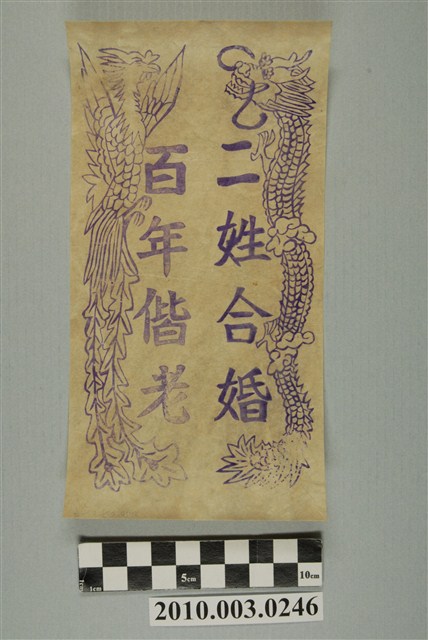 二姓合婚
百年偕老
1cm
5cm
10cm
2010.003.0246